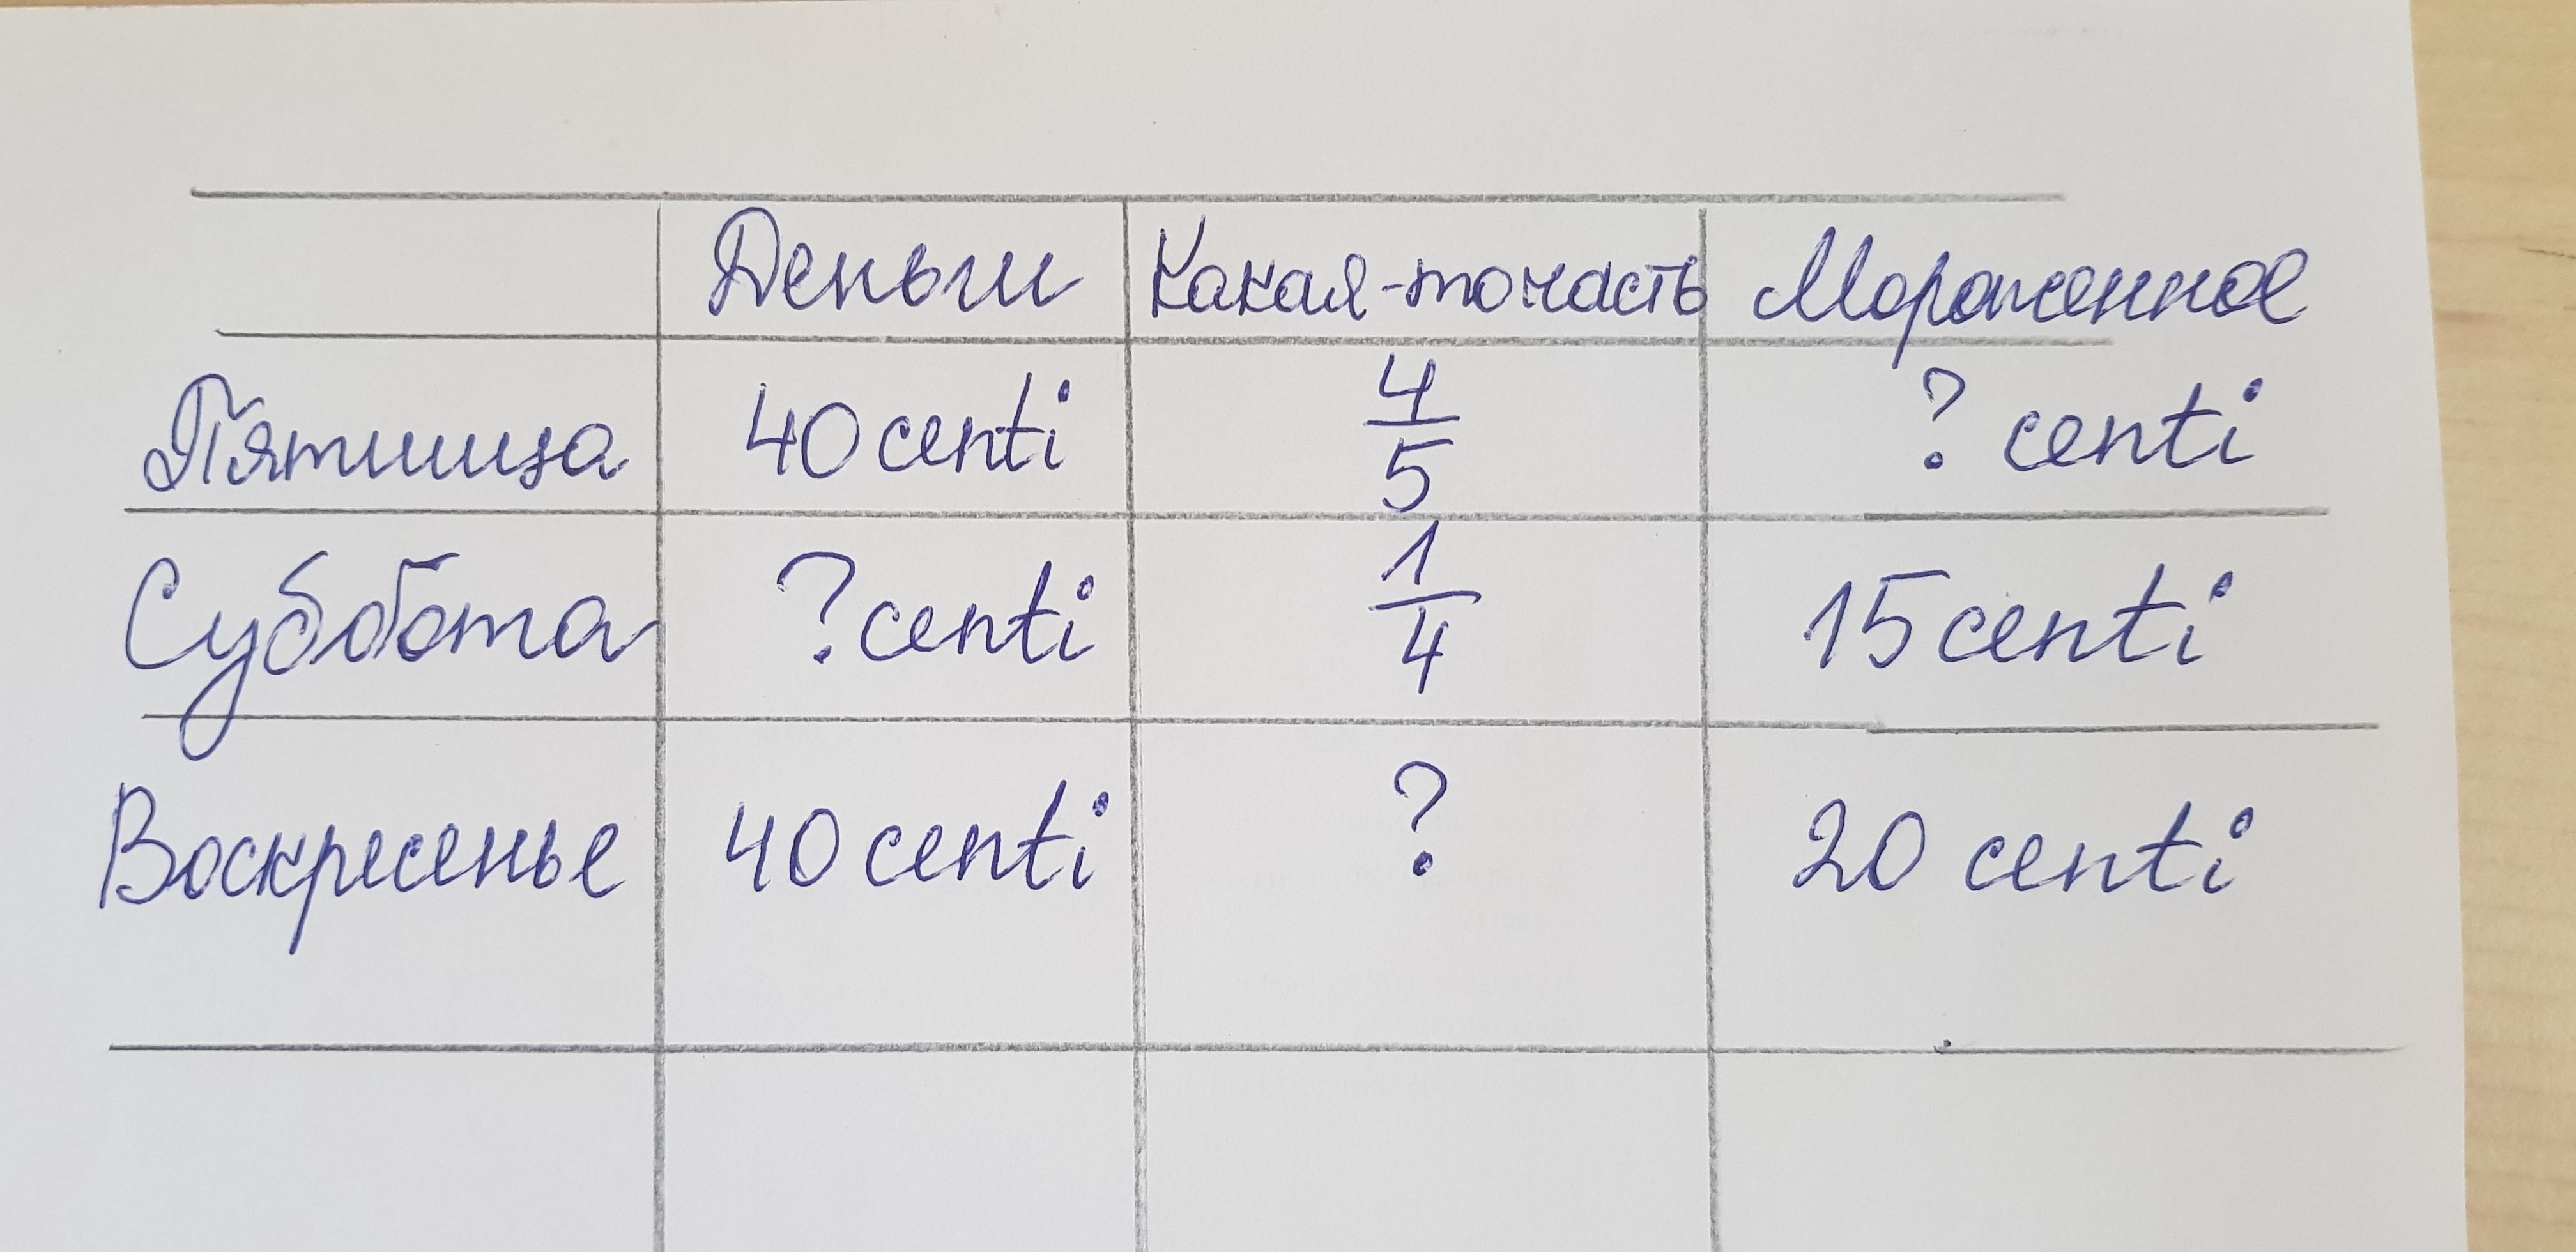 Деньги Какая-то часть Мороженное
Пятница 40 centi 4/5 ? centi
Суббота ? centi 1/4 15 centi
Воскресенье 40 centi ? 20 centi